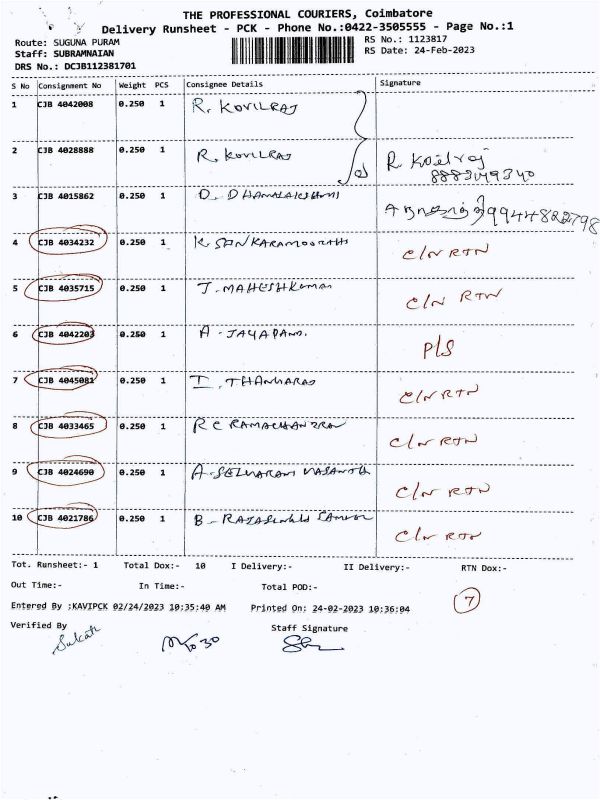 THE PROFESSIONAL COURIERS, Coimbatore
Delivery Runsheet - PCK - Phone No.:0422-3505555 - Page No.:1
Route: SUGUNA PURAM RS No.: 1123817
Staff: SUBRAMNAIAN RS Date: 24-Feb-2023
DRS No.: DCJB112381701
S No Consignment No Weight PCS Consignee Details Signature
1 CJB 4042008 0.250 1 R. KOVILRAJ
2 CJB 4028888 0.250 1 R. KOVILRAJ R Koilraj
3 CJB 4015862 0.250 1 D. DHANALAKSHMI 9944822798
4 CJB 4034232 0.250 1 K. SANKARAMOORTHI C/N RTN
5 CJB 4035715 0.250 1 J. MAHESHKUMAR C/N RTN
6 CJB 4042203 0.250 1 A. JAYAPAND. P/S
7 CJB 4045081 0.250 1 I. THANGARAJ C/N RTN
8 CJB 4033465 0.250 1 R C RAMACHANDRAN C/N RTN
9 CJB 4024690 0.250 1 A. SELVARANI VASANTH C/N RTN
10 CJB 4021786 0.250 1 B - C/N RTN
Tot. Runsheet:- 1 Total Dox:- 10 I Delivery:- II Delivery:- RTN Dox:-
Out Time:- In Time:- Total POD:-
Entered By :KAVIPCK 02/24/2023 10:35:40 AM Printed On: 24-02-2023 10:36:04 7
Verified By Staff Signature